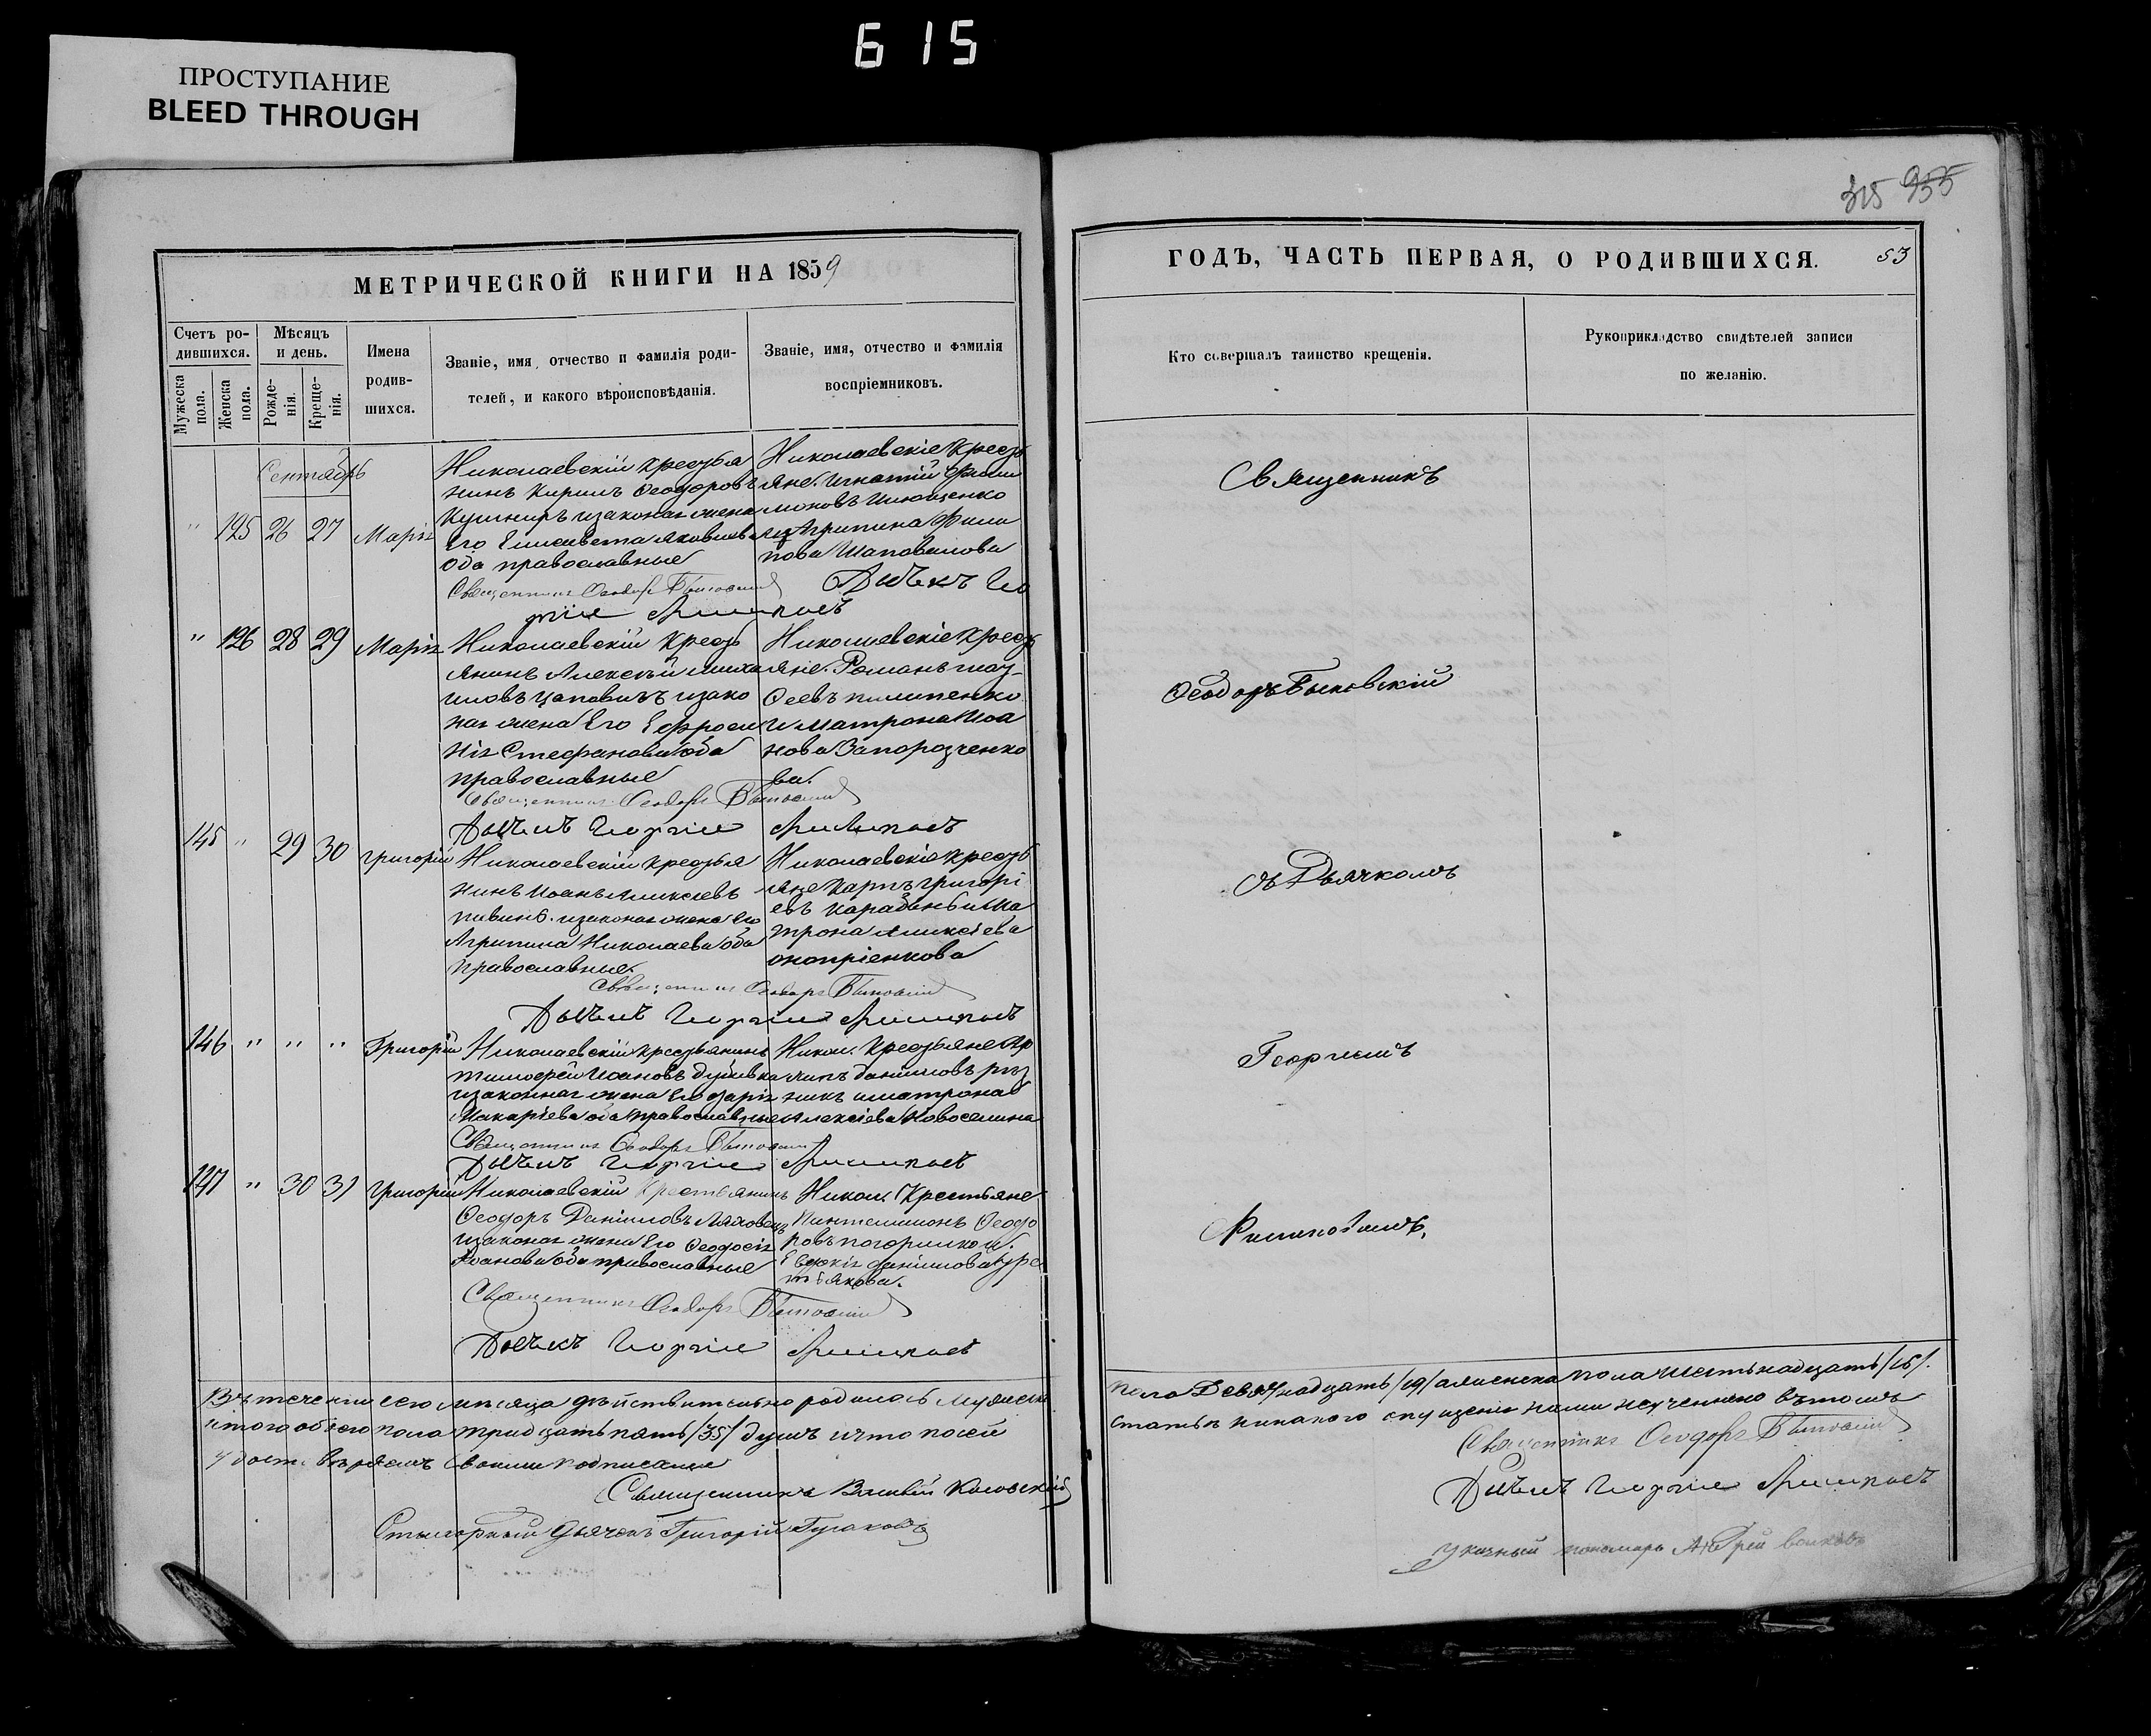 615
ПРОСТУПАНИЕ
BLEED THROUGH
315 955
МЕТРИЧЕСКОЙ КНИГИ НА 1859
Счетъ ро-
дившихся.
Мужеска
пола.
Женска
пола.
Мѣсяцъ
и день.
Рожде-
нія.
Креще-
нія.
Имена
родив-
шихся.
Званіе, имя, отчество и фамилія роди-
телей, и какого вѣроисповѣданія.
Званіе, имя, отчество и фамилія
воспріемниковъ.
Сентябрь
" 125 26 27 Марія
Николаевскій крестья
нинъ Кирилъ Ѳеодоровъ
Кушниръ изаконая жена
Его Елисавета Яковлева
оба православные
Николаевскіе Кресть
яне. Игнатій Фили
моновъ Ильющенко
и Агрипина Фили
пова Шаповалова
Священникъ Ѳеодоръ Быковскій
Дьячекъ Ге
оргій
" 126 28 29 Марія
Николаевскій кресть
янинъ Алексѣй Миха
иловъ Цаповичъ изако
ная жена Его Ефроси
нія Стефанова оба
православные
Николаевскіе Кресть
яне. Романъ
Ѳеевъ Пилипенко
и Матрона Иоа
нова Запорозченко
ва.
Священникъ Ѳеодоръ Быковскій
Дьячекъ Георгій
145 " 29 30 Григорій
Николаевскій крестья
нинъ Иоанъ Алексіевъ
изаконая жена Его
Агрипина Николаева оба
Православные.
Николаевскіе кресть
яне Карпъ Григорі
евъ Карабань и Ма
трона Алексіева
оноприенкова
Священникъ Ѳеодоръ Быковскій
Дьячекъ Георгій
146 " " " Григорій
Николаевскій крестьянинъ
Тимофей Иоановъ
изаконная жена Его Дарія
Макаріева оба православные
Никол. Крестьяне
Даниловъ
никъ и Матрона
Алексіева Новоселина
Священникъ Ѳеодоръ Быковскій
Дьячекъ Георгій
147 " 30 31 Григорій
Николаевскій Крестьянинъ
Ѳеодоръ Даніиловъ Ляховецъ
изаконая жена Его Ѳеодосія
Иоанова оба православные
Никол. Крестьяне
Пантелимонъ Ѳеодо
ровъ погорилко и.
Евдокія Даніилова
Священникъ Ѳеодоръ Быковскій
Дьячекъ Георгій
Въ теченіи сего мѣсяца дѣйствительно родилось Мужеска
итого обоего пола тридцать пять /35/ душъ и что по сей
удостовѣряемъ своими подписами
Священникъ Василій Косовскій
Дьячекъ Григорій Гусаковъ
ГОДЪ, ЧАСТЬ ПЕРВАЯ, О РОДИВШИХСЯ.
53
Кто совершалъ таинство крещенія.
Рукоприкладство свидѣтелей записи
по желанію.
Священникъ
Ѳеодоръ Быковскій
съ Дьячкомъ
Георгіемъ
пола Девятнадцать /19/ а женска пола шестьнадцать /16/.
статьѣ никакого опущенія нами неучинено въ томъ
Священникъ Ѳеодоръ Быковскій
Дьячекъ Георгій
Указный пономарь Андрей Волковъ